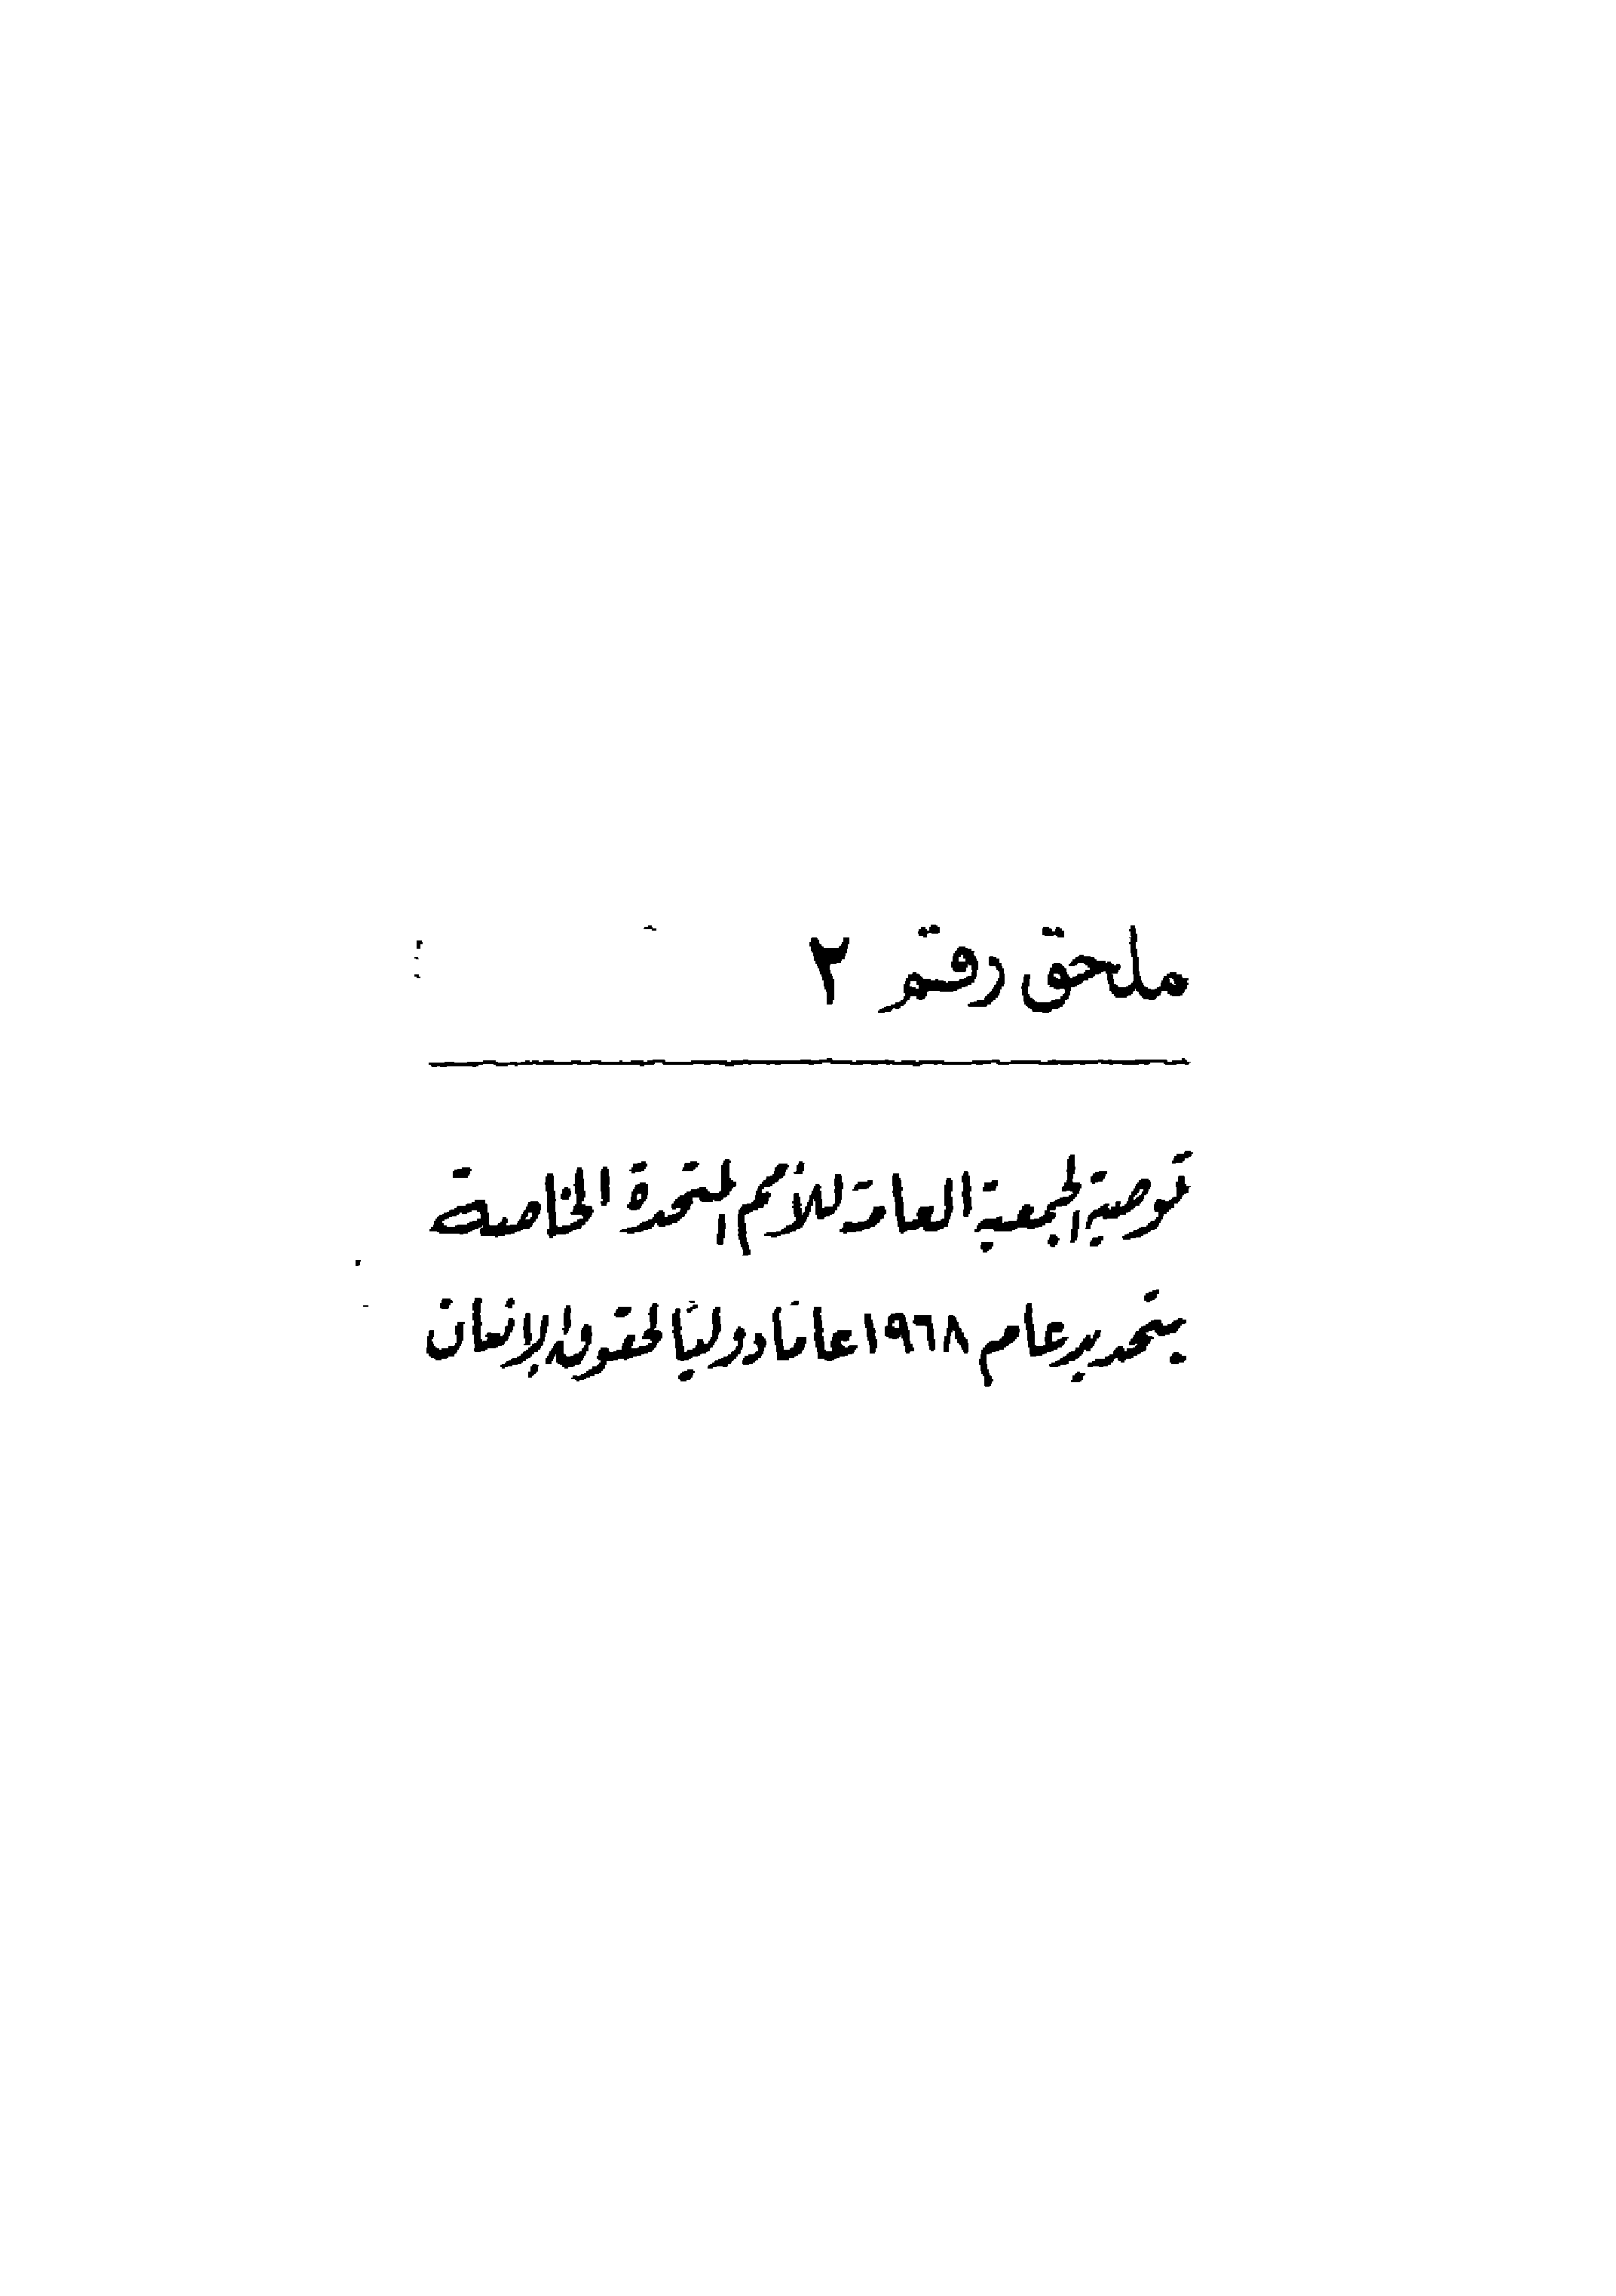 ملحق رقم ٢
توصية الجمعية العامة للأمم المتحدة الخاصة
بتحديد عام ١٩٦٨ عامًا دوليًا لحقوق الإنسان